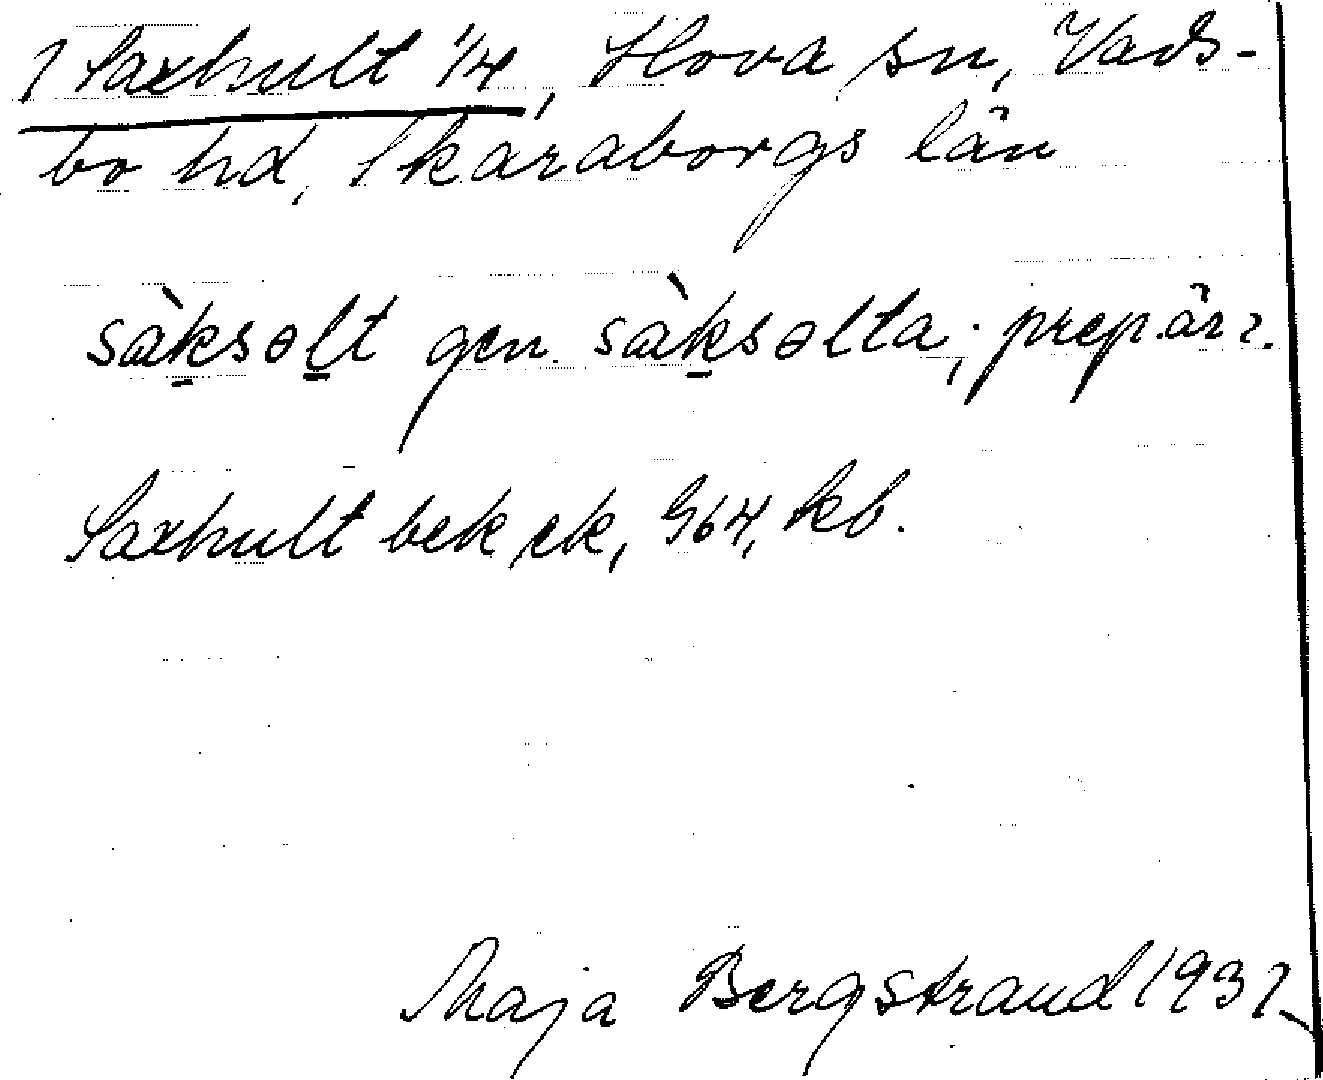 1 Saxhult 1/4, Hova sn, Vads-
bo hd, Skaraborgs län
sàksəlt gen. sàksəlta; prep. är i.
Saxhult bek ek, 964, kb.
Maja Bergstrand 1931